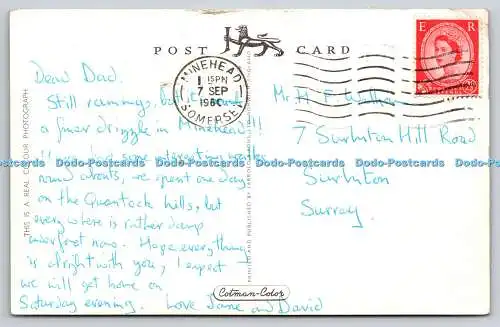 POST CARD
E R
MINEHEAD
1 15PM
7 SEP
1960
SOMERSET
Dear Dad.
Still raining, but
a finer drizzle in Minehead!!
round abouts, we spent one day
on the Quantock hills, but
everywhere is rather damp
underfoot now. Hope everything
is alright with you, I expect
we will get home on
Saturday evening. Love Jane and David
Mr. H. F.
7 Surbiton Hill Road
Surbiton
Surrey.
THIS IS A REAL COLOUR PHOTOGRAPH
PRINTED AND PUBLISHED BY JARROLD
Cotman-Color
Dodo-Postcards Dodo-Postcards Dodo-Postcards Dodo-Postcards Dodo-Postcards Dodo-Postcards